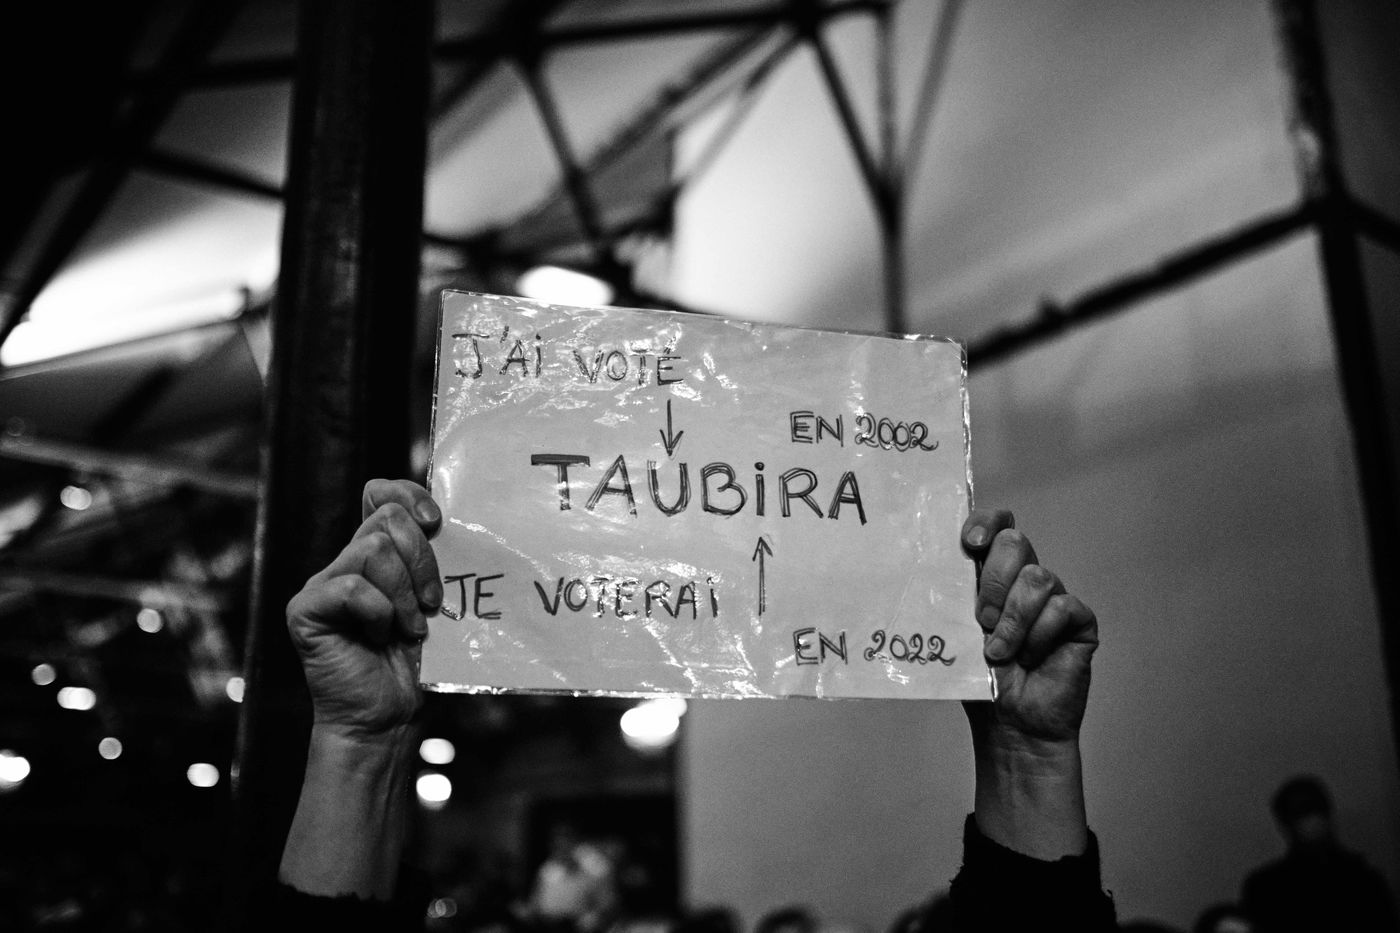 J'Ai VOTÉ
EN 2002
TAUBiRA
JE VOTERAi
EN 2022